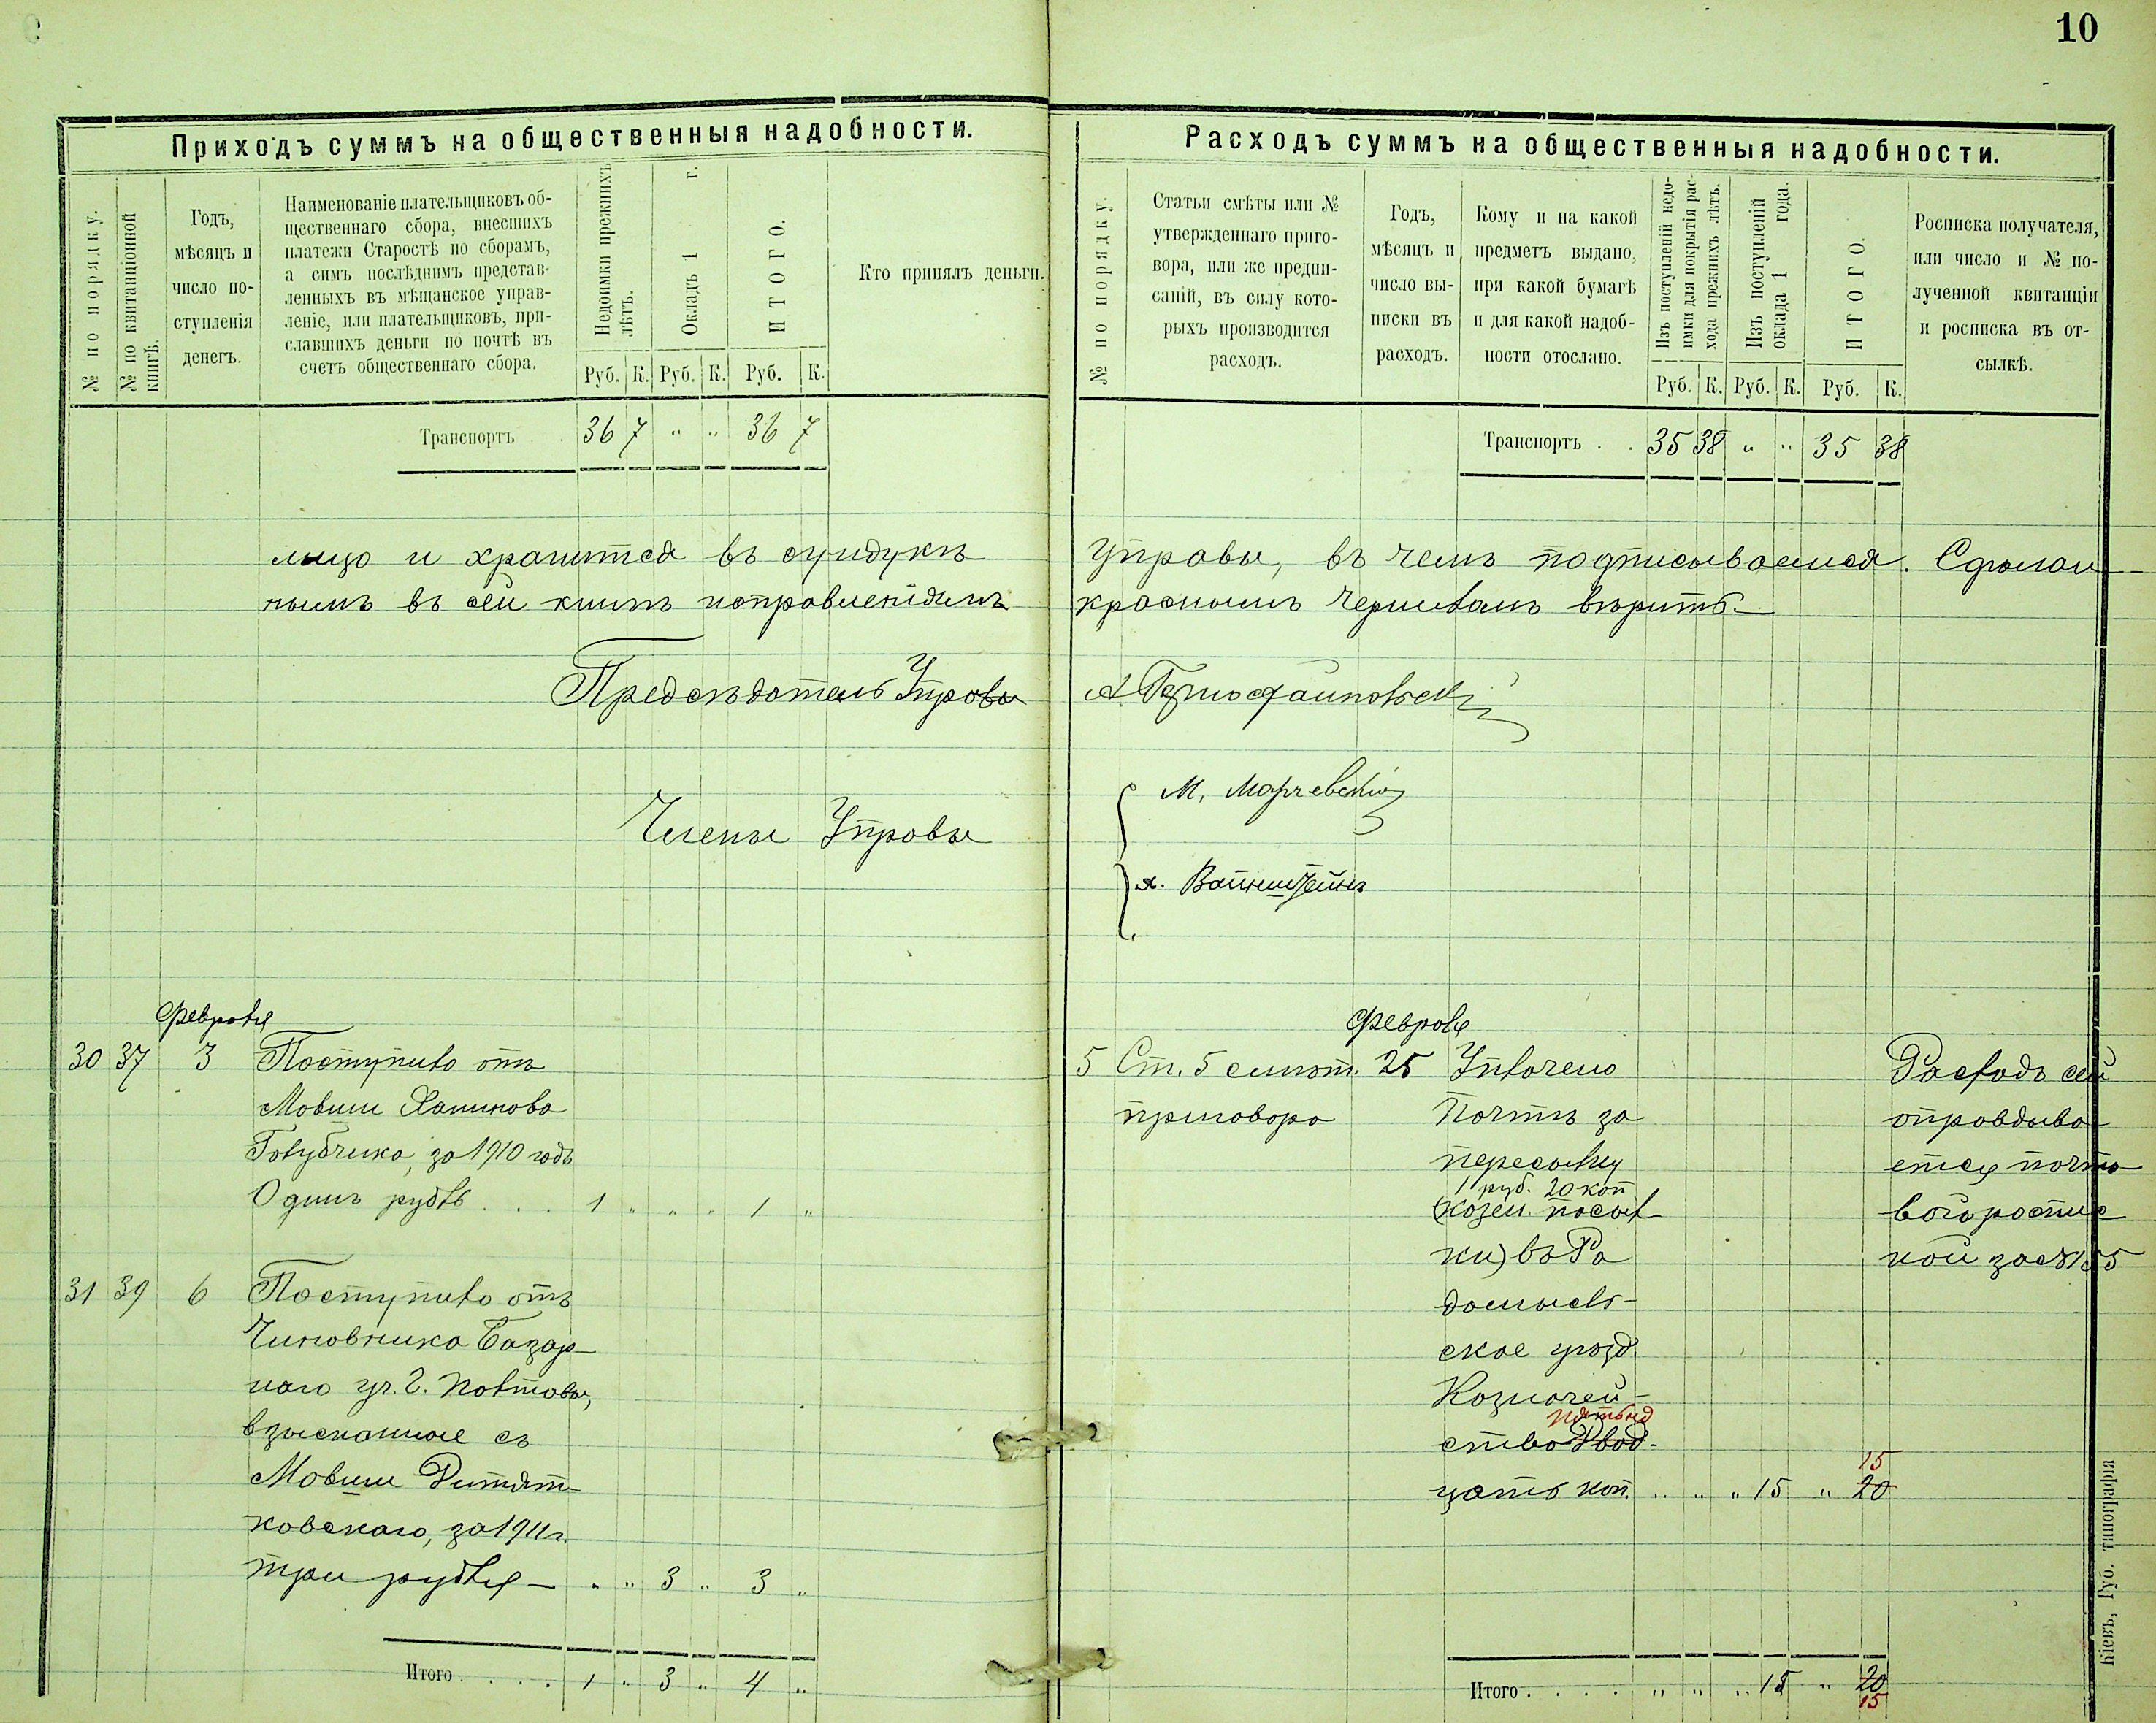 10
Приходъ суммъ на общественныя надобности.
№ по порядку.
№ по квитанціонной
книгѣ.
Годъ,
мѣсяцъ и
число по-
ступленія
денегъ.
Наименованіе плательщиковъ об-
щественнаго сбора, внесшихъ
платежи Старостѣ по сборамъ,
а симъ послѣднимъ представ-
ленныхъ въ мѣщанское управ-
леніе, или плательщиковъ, при-
славшихъ деньги по почтѣ въ
счетъ общественнаго сбора.
Недоимки прежнихъ
лѣтъ.
Окладъ 1 г.
ИТОГО.
Кто принялъ деньги.
Руб. К. Руб. К. Руб. К.
Транспортъ 36 7 " " 36 7
лицо и хранится въ сундукѣ
нымъ въ сей книгѣ исправленіямъ
Предсѣдатель Управы
Члены Управы
Февраля
30 37 3 Поступило отъ
Мовши Хаимова
Голубчика, за 1910 годъ
Одинъ рубль . . . 1 " " . 1 "
31 39 6 Поступило отъ
Чиновника Базар-
наго уч. Г. Повтовы,
взысканные съ
Мовши Дитят-
ковскаго, за 1911 г.
три рубля — " " 3 " 3 "
Итого . . . . 1 " 3 " 4 "
Расходъ суммъ на общественныя надобности.
№ по порядку.
Статьи смѣты или №
утвержденнаго приго-
вора, или же предпи-
саній, въ силу кото-
рыхъ производится
расходъ.
Годъ,
мѣсяцъ и
число вы-
писки въ
расходъ.
Кому и на какой
предметъ выдано,
при какой бумагѣ
и для какой надоб-
ности отослано.
Изъ поступленій недо-
имки для покрытія рас-
хода прежнихъ лѣтъ.
Изъ поступленій
оклада 1 года.
ИТОГО.
Росписка получателя,
или число и № по-
лученной квитанціи
и росписка въ от-
сылкѣ.
Руб. К. Руб. К. Руб. К.
Транспортъ . . 35 38 " " 35 38
Управы, въ чемъ подписываемся. Сдѣлан
краснымъ чернилам вѣрить.—
М. Марчевскій
Я. Вайнштейнъ
Февраля
5 Ст. 5 смѣт. 25 Уплочено
приговора Почтѣ за
пересылку
1 руб. 20 коп
(казен. посыл-
ки) въ Ра
домысль-
ское уѣзд.
Казначей-
пятьнд
ство Двад-
15
цать коп. " " " 15 " 20
Расходъ сей
оправдыва
ется почто-
вой роспис
кой за № 155
Итого . . . . " " " 15 " 20
15
Кіевъ, Губ. типографія